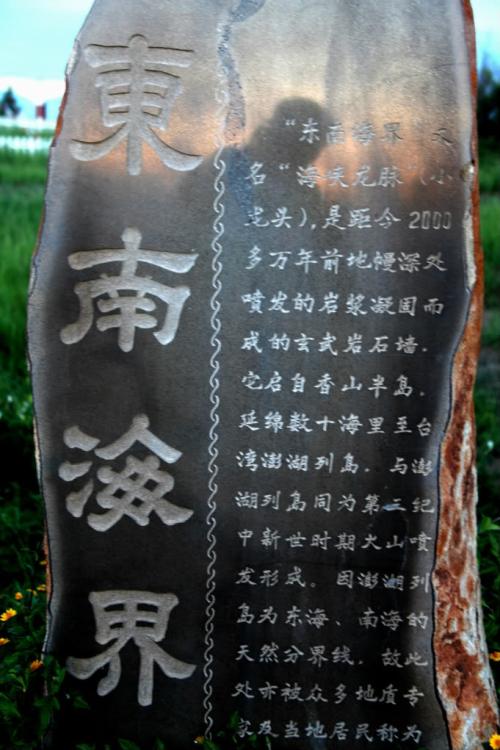 東南海界
“东南海界”又
名“海峡龙脉”(小
龙头),是距今2000
多万年前地幔深处
喷发的岩浆凝固而
成的玄武岩石墙.
它启自香山半岛.
延绵数十海里至台
湾澎湖列岛.与澎
湖列岛同为第三纪
中新世时期火山喷
发形成。因澎湖列
岛为东海、南海的
天然分界线.故此
处亦被众多地质专
家及当地居民称为